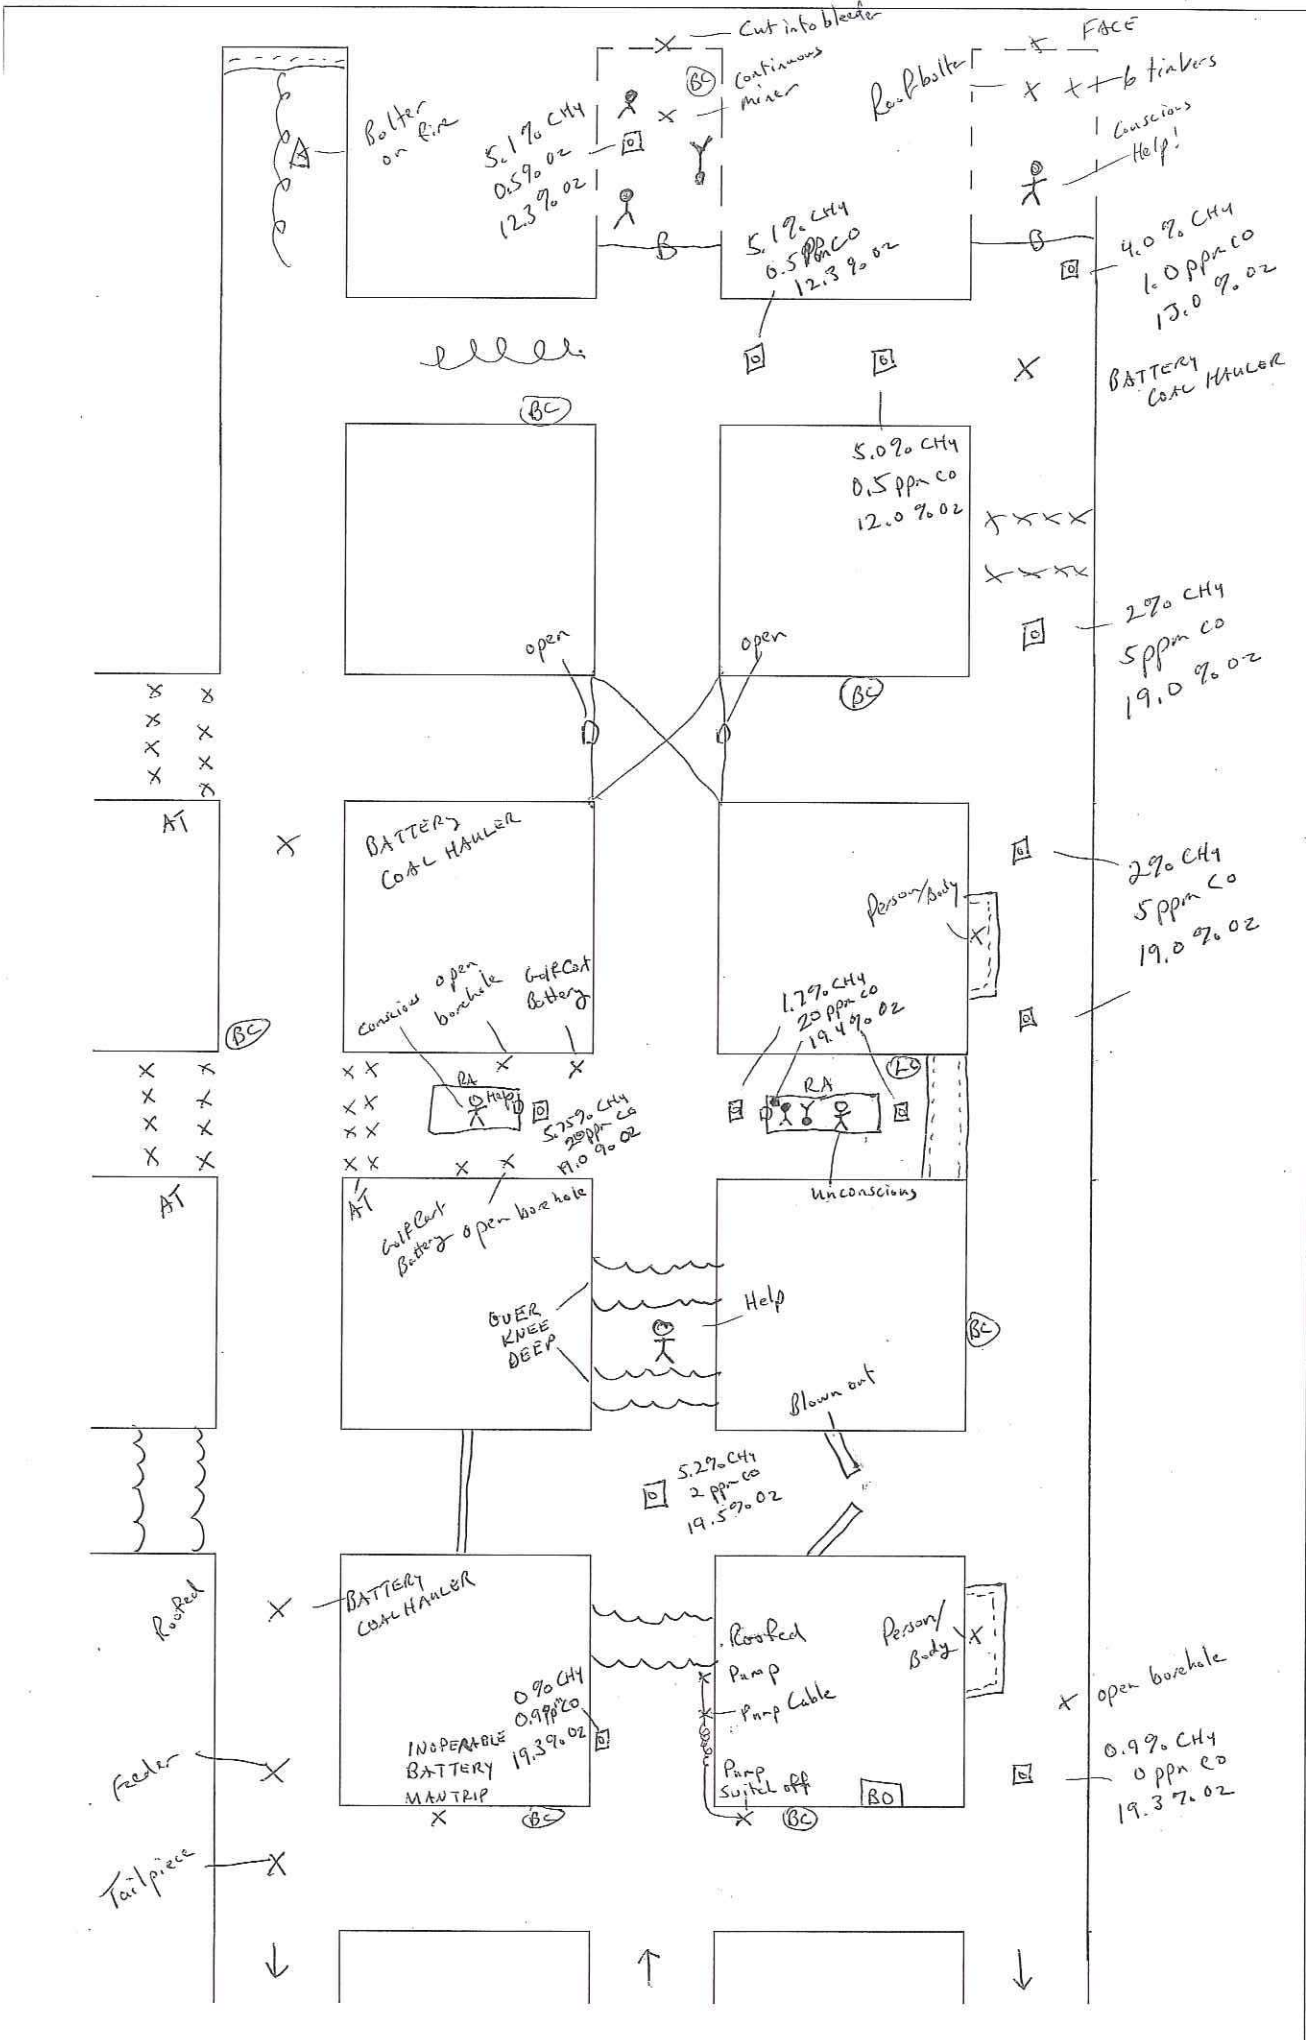 Cut into bleeder
FACE
BC
Continuous
miner
Roof bolter
6 timbers
Conscious
Help!
Bolter
on fire
5.1% CH4
0.5% O2
12.3% O2
B
B
5.1% CH4
0.5 ppm CO
12.3% O2
4.0% CH4
1.0 ppm CO
13.0% O2
BATTERY
COAL HAULER
BC
5.0% CH4
0.5 ppm CO
12.0% O2
open
open
2% CH4
5 ppm CO
19.0% O2
BC
AT
BATTERY
COAL HAULER
2% CH4
5 ppm CO
19.0% O2
Person/Body
Conscious
open
borehole
Golf Cart
Battery
1.7% CH4
20 ppm CO
19.4% O2
BC
RA
Help
RA
5.75% CH4
20 ppm CO
19.0% O2
AT
AT
Golf Cart
Battery
open borehole
Unconscious
OVER
KNEE
DEEP
Help
BC
Blown out
5.2% CH4
2 ppm CO
19.5% O2
Roofed
BATTERY
COAL HAULER
Roofed
Pump
Pump Cable
Pump
Switch off
Person/
Body
open borehole
0% CH4
0.9 ppm CO
19.3% O2
INOPERABLE
BATTERY
MANTRIP
BC
BC
BO
0.9% CH4
0 ppm CO
19.3% O2
Feeder
Tailpiece